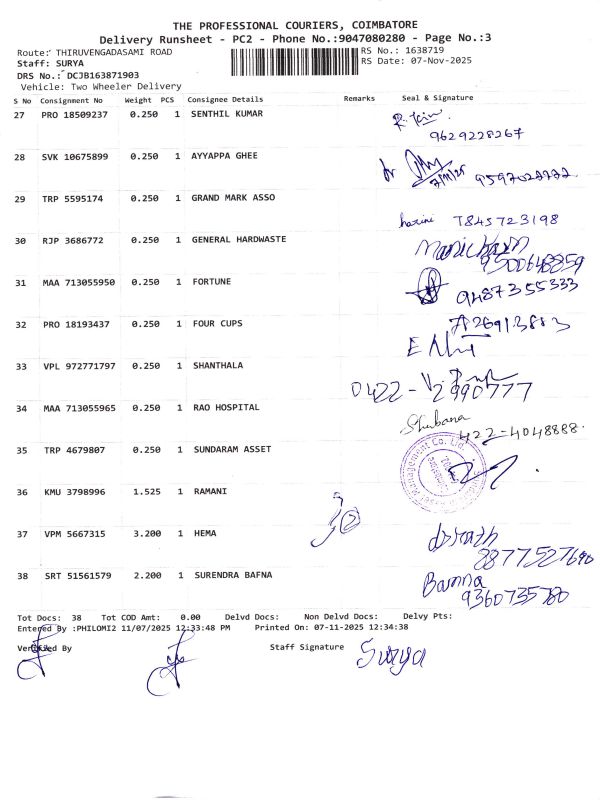 THE PROFESSIONAL COURIERS, COIMBATORE
Delivery Runsheet - PC2 - Phone No.:9047080280 - Page No.:3
Route: THIRUVENGADASAMI ROAD RS No.: 1638719
Staff: SURYA RS Date: 07-Nov-2025
DRS No.: DCJB163871903
Vehicle: Two Wheeler Delivery
S No Consignment No Weight PCS Consignee Details Remarks Seal & Signature
27 PRO 18509237 0.250 1 SENTHIL KUMAR
9629228267
28 SVK 10675899 0.250 1 AYYAPPA GHEE
29 TRP 5595174 0.250 1 GRAND MARK ASSO
harini 7845723198
30 RJP 3686772 0.250 1 GENERAL HARDWASTE
31 MAA 713055950 0.250 1 FORTUNE
9487355333
32 PRO 18193437 0.250 1 FOUR CUPS
33 VPL 972771797 0.250 1 SHANTHALA
0422 - 2990777
34 MAA 713055965 0.250 1 RAO HOSPITAL
Shobana
422-4048888.
35 TRP 4679807 0.250 1 SUNDARAM ASSET
36 KMU 3798996 1.525 1 RAMANI
37 VPM 5667315 3.200 1 HEMA
38 SRT 51561579 2.200 1 SURENDRA BAFNA
Tot Docs: 38 Tot COD Amt: 0.00 Delvd Docs: Non Delvd Docs: Delvy Pts:
Entered By :PHILOMI2 11/07/2025 12:33:48 PM Printed On: 07-11-2025 12:34:38
Verified By Staff Signature Surya